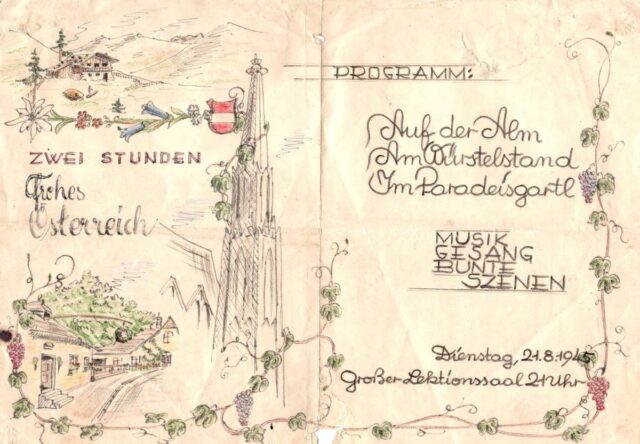 ZWEI STUNDEN
Frohes
Österreich
PROGRAMM:
Auf der Alm
Am Würstelstand
Im Paradeisgartl
MUSIK
GESANG
BUNTE
SZENEN
Dienstag, 21.8.1945
Großer Lektionssaal 21 Uhr